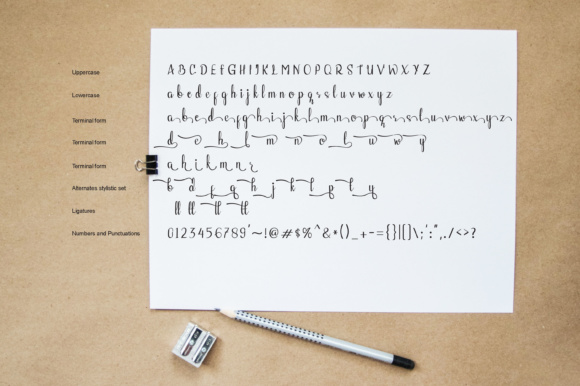 Uppercase A B C D E F G H I J K L M N O P Q R S T U V W X Y Z
Lowercase a b c d e f g h i j k l m n o p q r s t u v w x y z
Terminal form a b c d e f g h i j k l m n o p q r s t u v w x y z
Terminal form d e h l m n o t u w y
Terminal form a h i k m n r
Alternates stylistic set b d f g h j k l p t y
Ligatures ll tt
Numbers and Punctuations 0123456789'~!@#$%^&*()_+-={}|[]\;':",./<>?